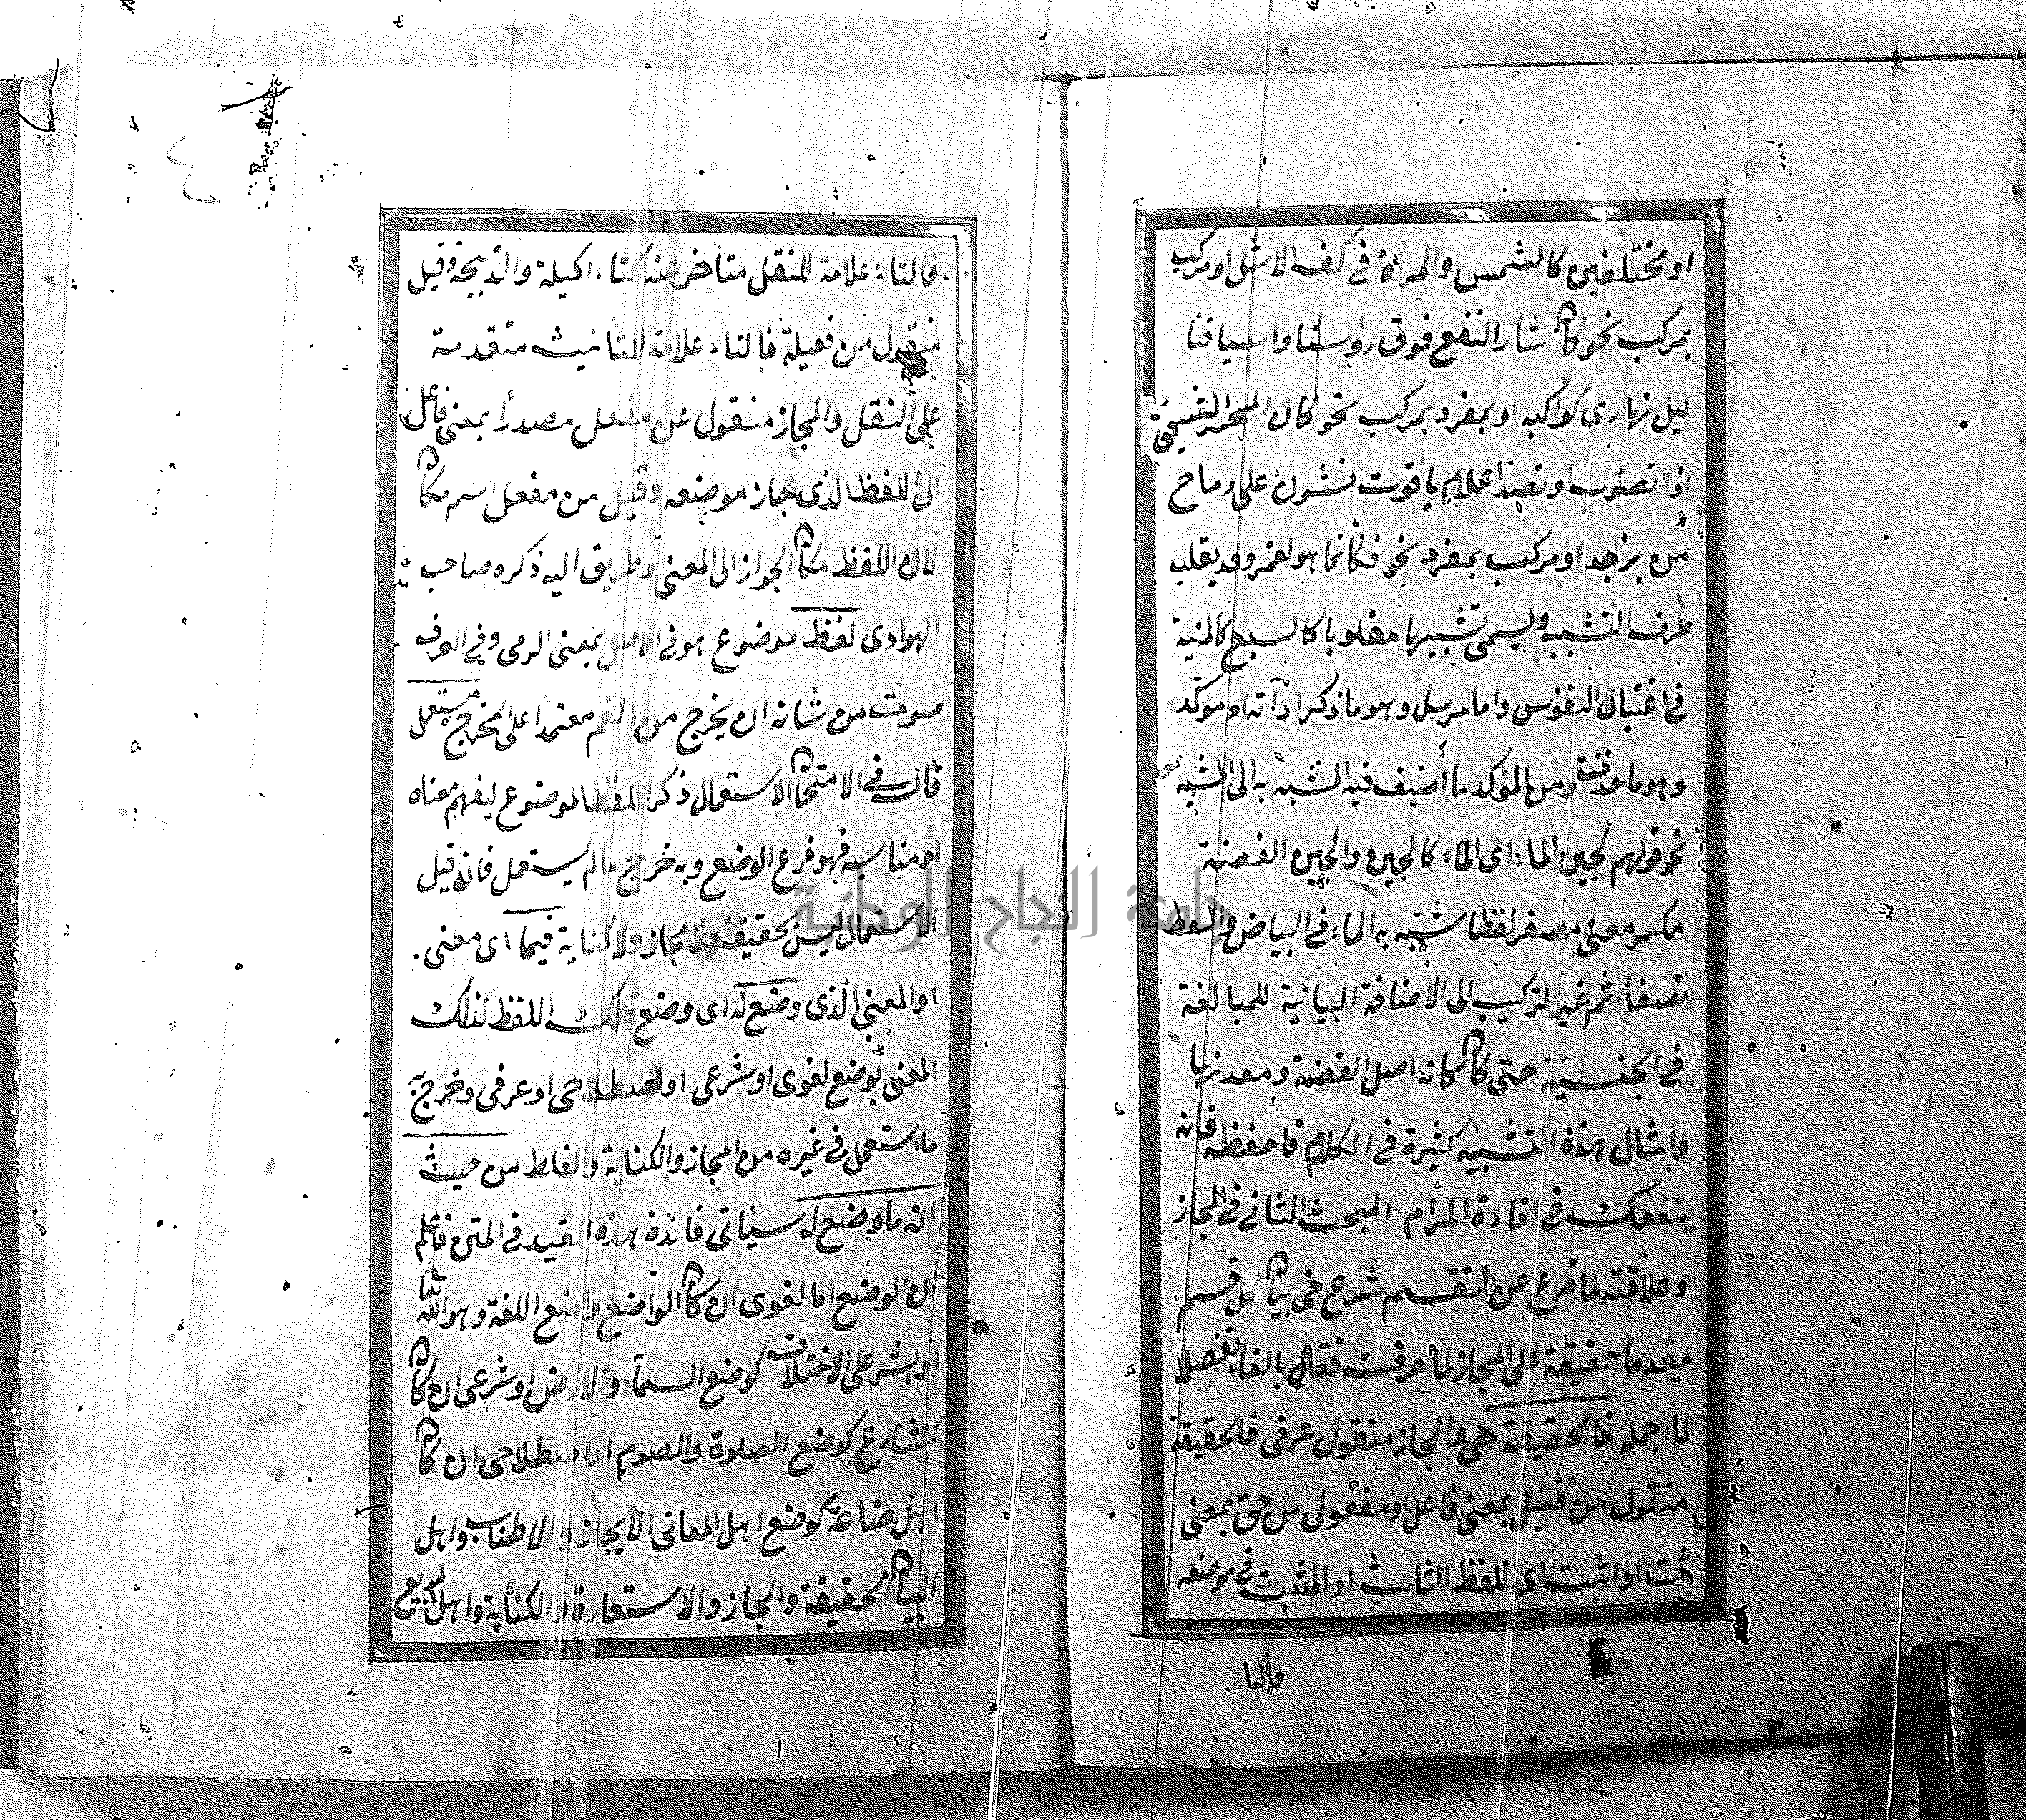 او مختلفين كالشمس والمرأة في كف الاشل او مركب
بمركب نحو كان مثار النقع فوق رؤسنا واسيافنا
ليل تهاوى كواكبه او بمفرد بمركب نحو كان المحمر الشقيق
اذا تصوب او تصعد اعلام ياقوت نشرن على رماح
من زبرجد او مركب بمفرد نحو فكانما هو مقمر وقد يقلب
طرف التشبيه ويسمى تشبيها مقلوبا كالسبع كالمنية
في اغتيال النفوس واما مرسل وهو ما ذكر اداته او موكد
وهو ما حذفت ومن المؤكد ما أضيف فيه المشبه به الى المشبه
نحو قولهم لجين الماء اى الماء كاللجين واللجين الفضة
مكبر معنى مصغر لفظا شبه به الماء في البياض
ثم غير التركيب الى الاضافة البيانية للمبالغة
في الجنسية حتى كان كانه اصل الفضة ومعدنها
وامثال هذه التشبيه كثيرة في الكلام فاحفظه فانه
ينفعك في افادة المرام المبحث الثاني في المجاز
وعلاقته لما فرغ عن التقسيم شرع في بيان كل قسم
مقدما حقيقة على المجاز لما عرفت فقال بالفاء تفصيلا
لما اجمله فالحقيقة هي والمجاز منقول عرفي فالحقيقة
منقول من فعيل بمعنى فاعل او مفعول من حق بمعنى
ثبت او اثبت اى للفظ الثابت او المثبت في موضعه
فالتاء
فالتاء علامة للنقل متأخر عنه كتاء اكيلة والذبيحة وقيل
منقول من فعيلة فالتاء علامة للتانيث متقدمة
على النقل والمجاز منقول عن مفعل مصدرا بمعنى فاعل
الى اللفظ الذى جاز موضعه وقيل من مفعل اسم مكان
لان اللفظ مكان الجواز الى المعنى وطريق اليه ذكره صاحب
الهوادى لفظ موضوع هو في الاصل بمعنى الرمى وفي العرف
صوت من شانه ان يخرج من الفم معتمدا على المخرج مستعمل
قال في الامتحان الاستعمال ذكر اللفظ الموضوع ليفهم معناه
او مناسبه فهو فرع الوضع وبه خرج ما لم يستعمل فانه قبل
الاستعمال ليس بحقيقة ولا مجاز ولا كناية فيما اى معنى
او المعنى الذى وضع له اى وضع ذلك اللفظ لذلك
المعنى بوضع لغوى او شرعى او اصطلاحى او عرفى وخرج به
ما استعمل في غيره من المجاز والكناية والغلط من حيث
انه ما وضع له سيأتى فائدة هذه القيد في المتن فاعلم
ان الوضع اما لغوى ان كان الواضع واضع اللغة وهو الله تعالى
او بشر على الاختلاف كوضع السماء والارض او شرعى ان كان
الشارع كوضع الصلوة والصوم او اصطلاحى ان كان
اهل صناعة كوضع اهل المعانى الايجاز والاطناب واهل
البيان الحقيقة والمجاز والاستعارة والكناية واهل البديع
جامعة النجاح الوطنية